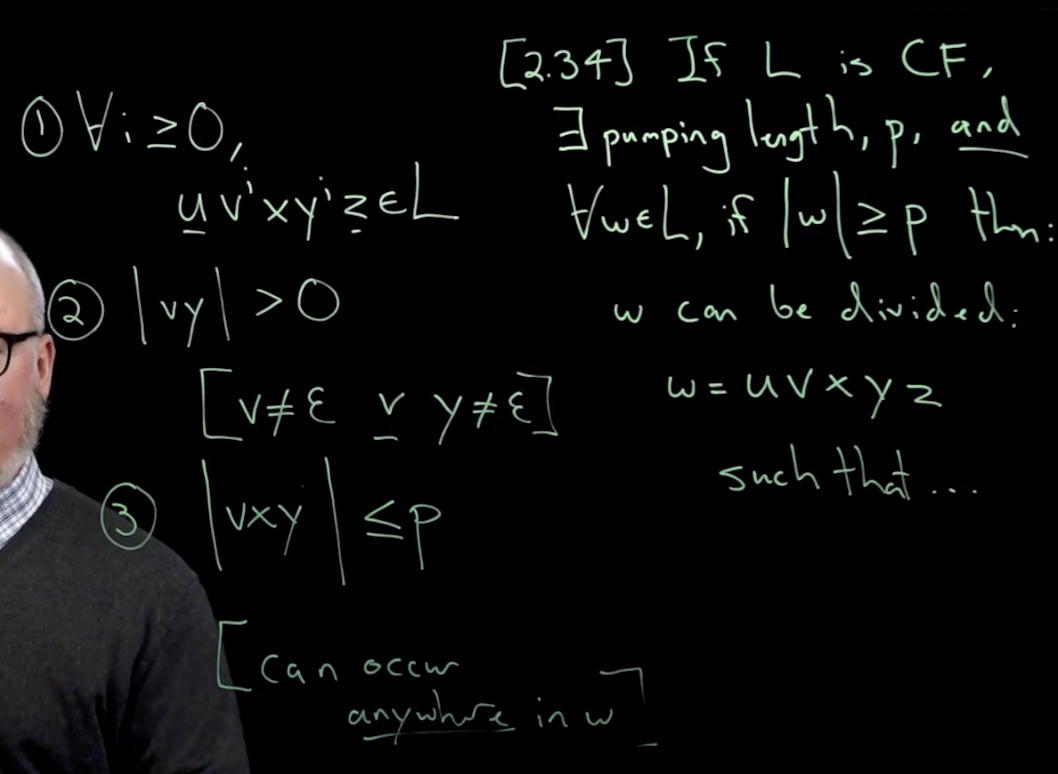 [2.34] If L is CF,
∃ pumping length, p, and
∀w∈L, if |w| ≥ p then:
w can be divided:
w = u v x y z
such that ...
① ∀i ≥ 0,
u vⁱ x yⁱ z ∈ L
② |vy| > 0
[v ≠ ε ∨ y ≠ ε]
③ |vxy| ≤ p
[can occur
anywhere in w]